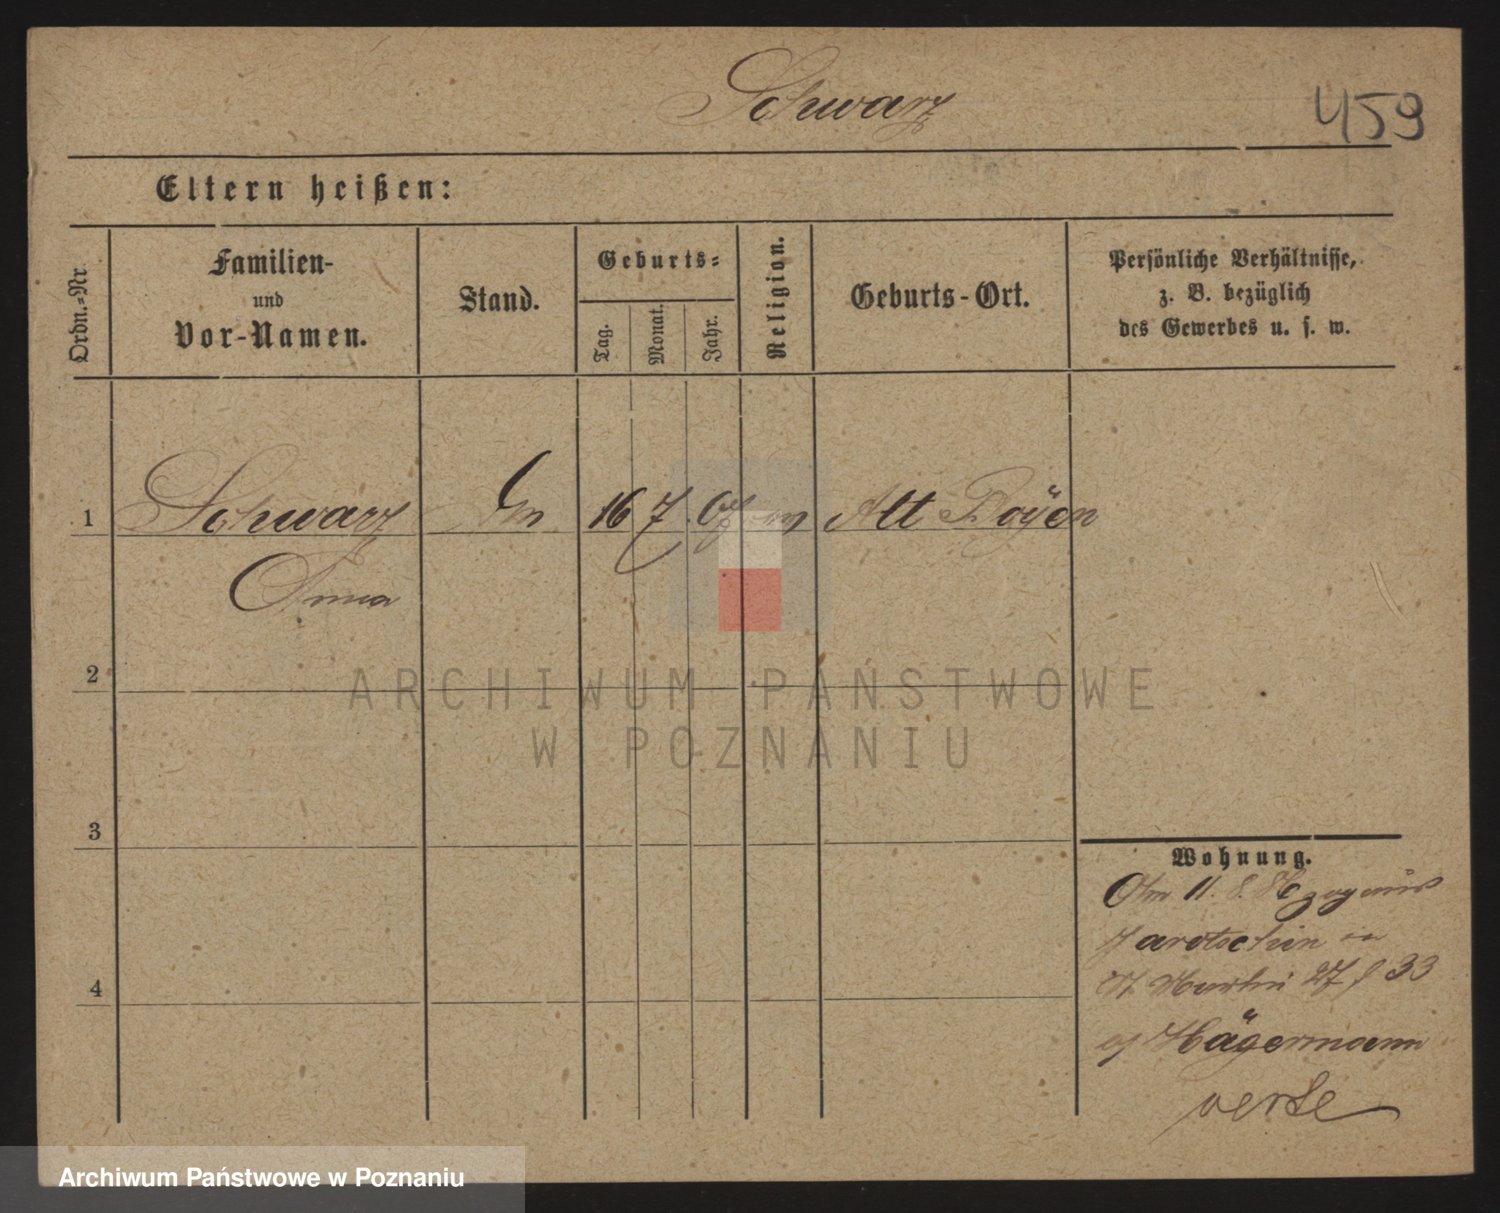 Schwarz
459
Eltern heißen:
Ordn.=Nr.
Familien-
und
Vor-Namen.
Stand.
Geburts=
Tag.
Monat.
Jahr.
Religion.
Geburts-Ort.
Persönliche Verhältnisse,
z. B. bezüglich
des Gewerbes u. s. w.
1 Schwarz 16 7 Alt
Anna
2
3
4
Wohnung.
11.
Jarotschin
St. Martin 27 33
Hägermann
ARCHIWUM PAŃSTWOWE
W POZNANIU
Archiwum Państwowe w Poznaniu